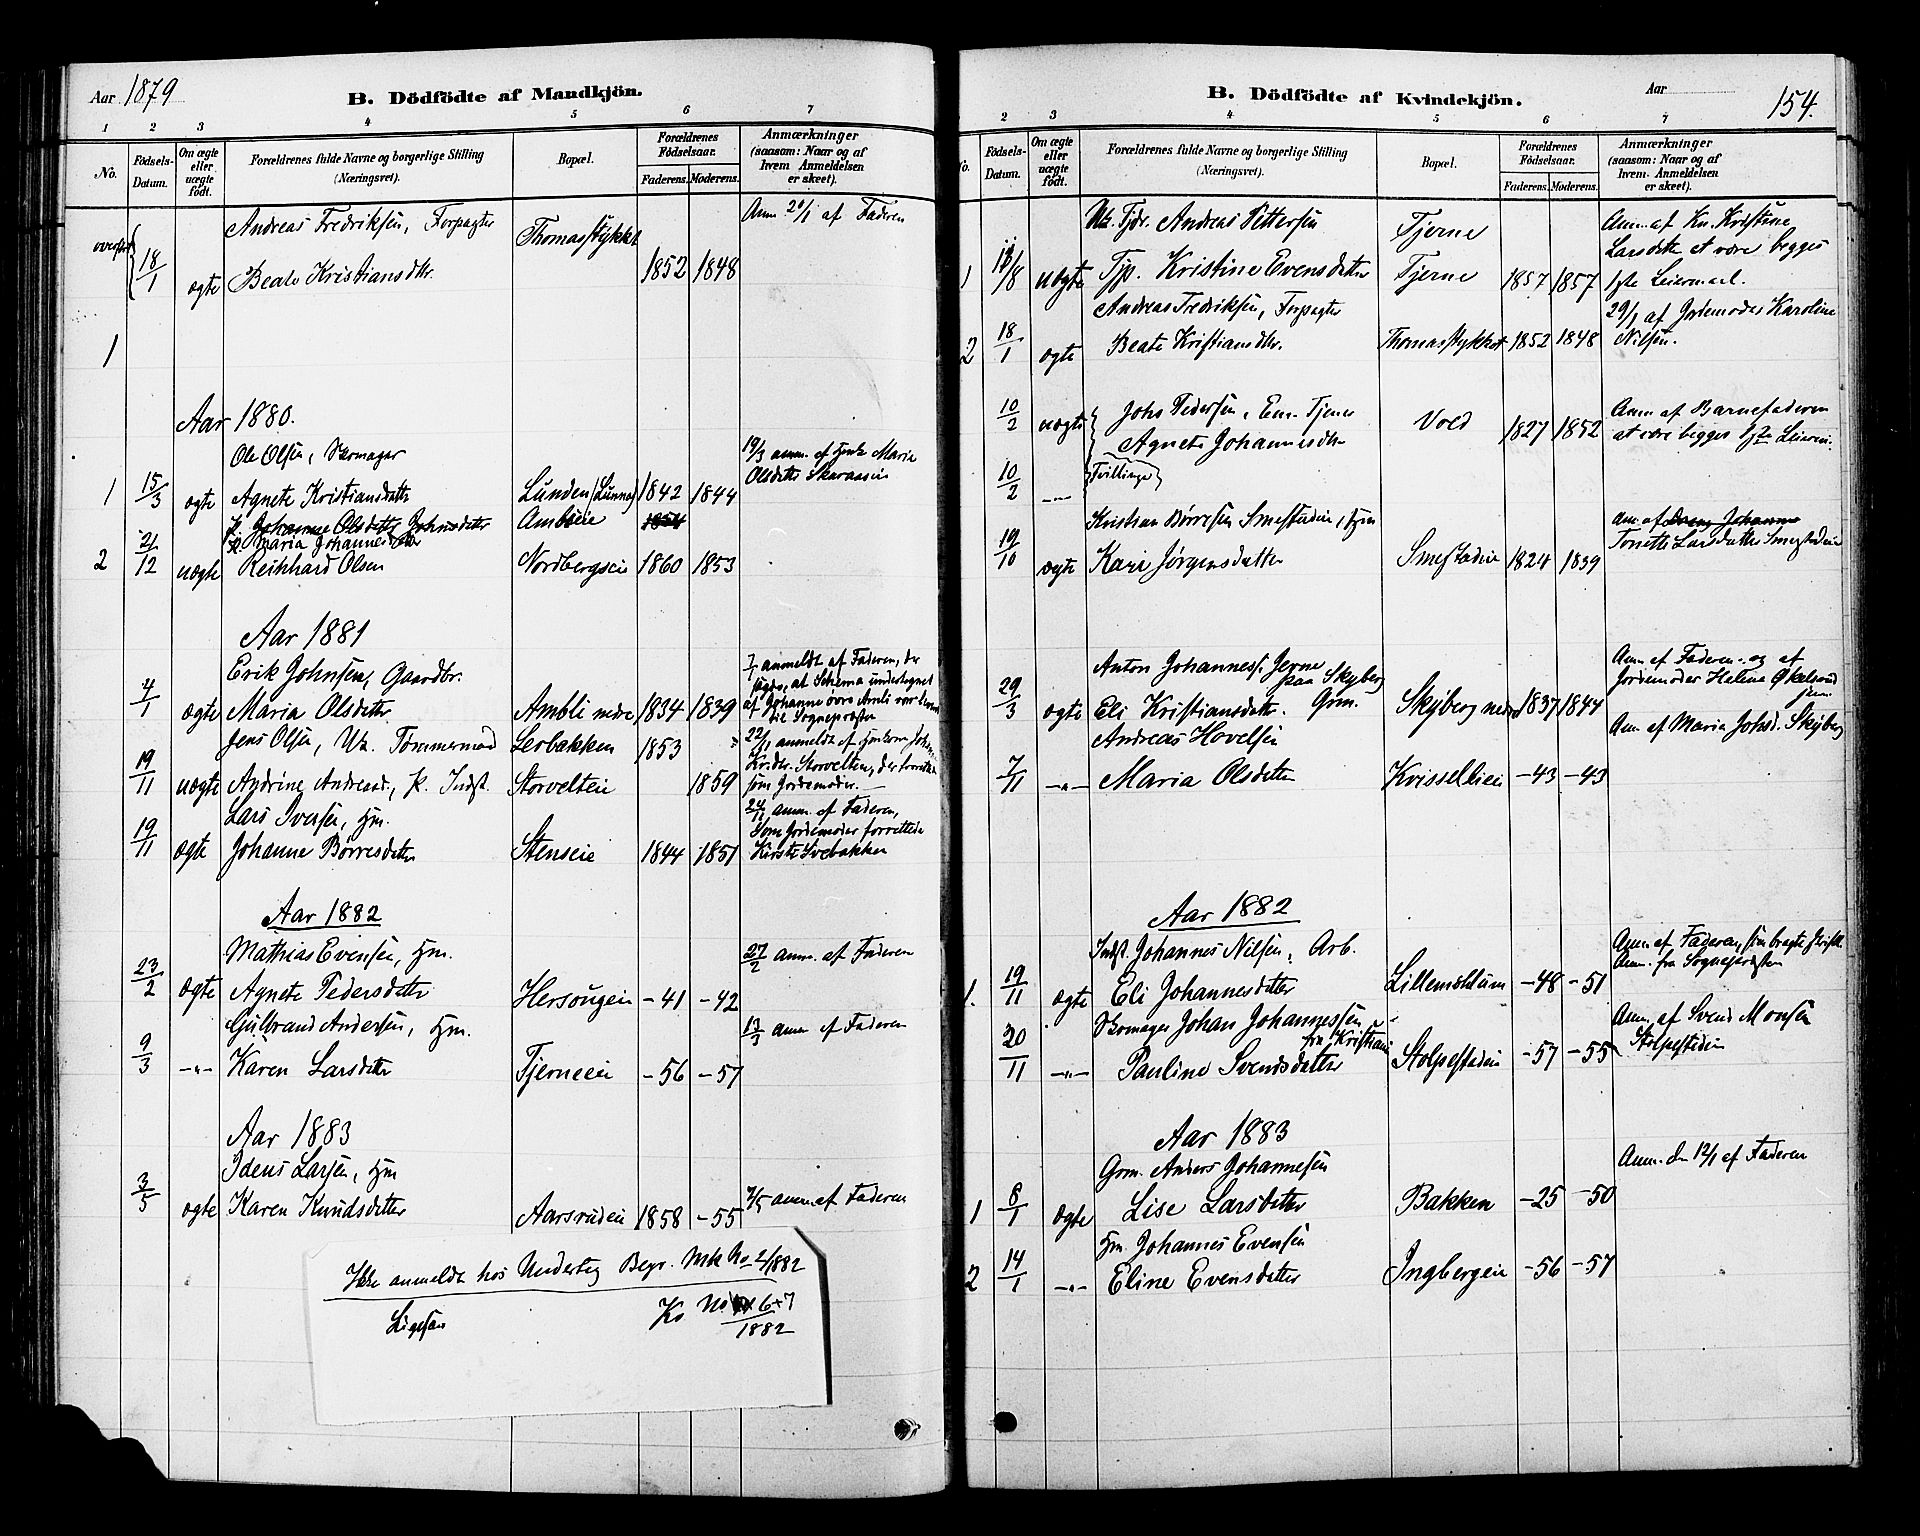 Aar 1879
B. Dödfödte af Mandkjön.
1 2 3 4 5 6 7
No.
Födsels-Datum.
Om ægte eller uægte födt.
Forældrenes fulde Navne og borgerlige Stilling (Næringsvei).
Bopæl.
Forældrenes Födselsaar.
Faderens. Moderens.
Anmærkninger (saasom: Naar og af hvem Anmeldelsen er skeet).
Andreas Fredriksen, Forpagter Thomasstykket Anm. 20/1 af Faderen
18/1 ægte Beate Kristiansdtr. 1852 1848
1
Aar 1880.
Ole Olsen, Skomager 19/3 anm. af Maria
1 15/3 ægte Agnete Kristiansdatter Lunden (Lunna) 1842 1844 Olsdatter
Johanne Olsdatter Johnsdatter 1854
P. Maria Johannesdtr
2 21/12 uægte Reinhard Olsen Nordbergseie 1860 1853
Aar 1881
Erik Johnsen, Gaardbr. anmeldt af Faderen, der
at Schema undertegnet
4/1 ægte Maria Olsdatter Ambli nedre 1834 1839 af Johanne øvre Ambli var
til Sognepræsten
Jens Olsen, Uk. Tømmermand Lerbakken 1853 22/11 anmeldt af
19/11 uægte Andrine Andreasd., P. Indst. Storvelteie 1859 som Jordemoder.
Lars Iversen, Hm. 24/11 anm. af Faderen,
Som Jordemoder forrettede
19/11 ægte Johanne Børresdatter Stenseie 1844 1851 Kirsti
Aar 1882
Mathias Evensen, Hm. 27/2 anm. af Faderen
23/2 ægte Agnete Pedersdatter Hersougeie -41 -42
Gulbrand Andersen, Hm. 13/3 anm af Faderen
9/3 -"- Karen Larsdatter Tjerneeie -56 -57
Aar 1883
Idens Larsen, Hm
3/5 ægte Karen Knudsdatter Aarsrudeie 1858 -55 7/5 anm. af Faderen
Ikke anmeldt hos Underteg Begr. Mk No 2/1882
Ligesaa Kv No 6+7/1882
B. Dödfödte af Kvindekjön.
Aar
154.
2 3 4 5 6 7
No.
Födsels-Datum.
Om ægte eller uægte födt.
Forældrenes fulde Navne og borgerlige Stilling (Næringsvei).
Bopæl.
Forældrenes Födselsaar.
Faderens. Moderens.
Anmærkninger (saasom: Naar og af hvem Anmeldelsen er skeet).
Uk. Tjdr. Andreas Pettersen Tjerne Anm. af Kristine
Larsdttr at være begges
1 uægte Tjp. Kristine Evensdatter Tjerne 1857 1857 1ste Leiermaal.
Andreas Fredriksen, Forpagter 29/1 af Jordemoder Karoline
2 18/1 ægte Beate Kristiansdtr. Thomasstykket 1852 1848 Nilsen.
10/2 uægte Johs Pedersen, Em. Tjener Vold 1827 1852 Anm af Barnefaderen
Agnete Johannesdtr at være begges Leierm.
10/2 -"- Tvillinge
Kristian Børresen Smestadeie, Hm Anm. af Johanne
19/10 ægte Kari Jørgensdatter Smestadeie 1824 1839 Larsdatter Smestadeie
Anton Johanness. Jerne paa Skyberg Anm. af Faderen og af
29/3 ægte Eli Kristiansdatter. Grm. Skyberg nedre 1837 1844 Jordemoder
Andreas Hovelsen Anm. af Maria Johsd. Skyberg
7/11 -"- Maria Olsdatter Kvisselleie -43 -43
Aar 1882
Indst. Johannes Nilsen, Arb. Anm. af Faderen, som bragte
Anm. fra Sognepræsten
1. 19/11 ægte Eli Johannesdatter Lillemoldum -48 -51
Skomager Johan Johannessen fra Kristiania Anm. af Svend Monsen
20/11 -"- Pauline Svendsdatter Stolpestadeie -57 -55 Stolpestadeie
Aar 1883
Grm. Anders Johannesen Anm. den 12/1 af Faderen
1 8/1 ægte Lise Larsdatter Bakken -25 -50
Hm Johannes Evensen
2 14/1 -"- Eline Evensdatter Ingbergeie -56 -57